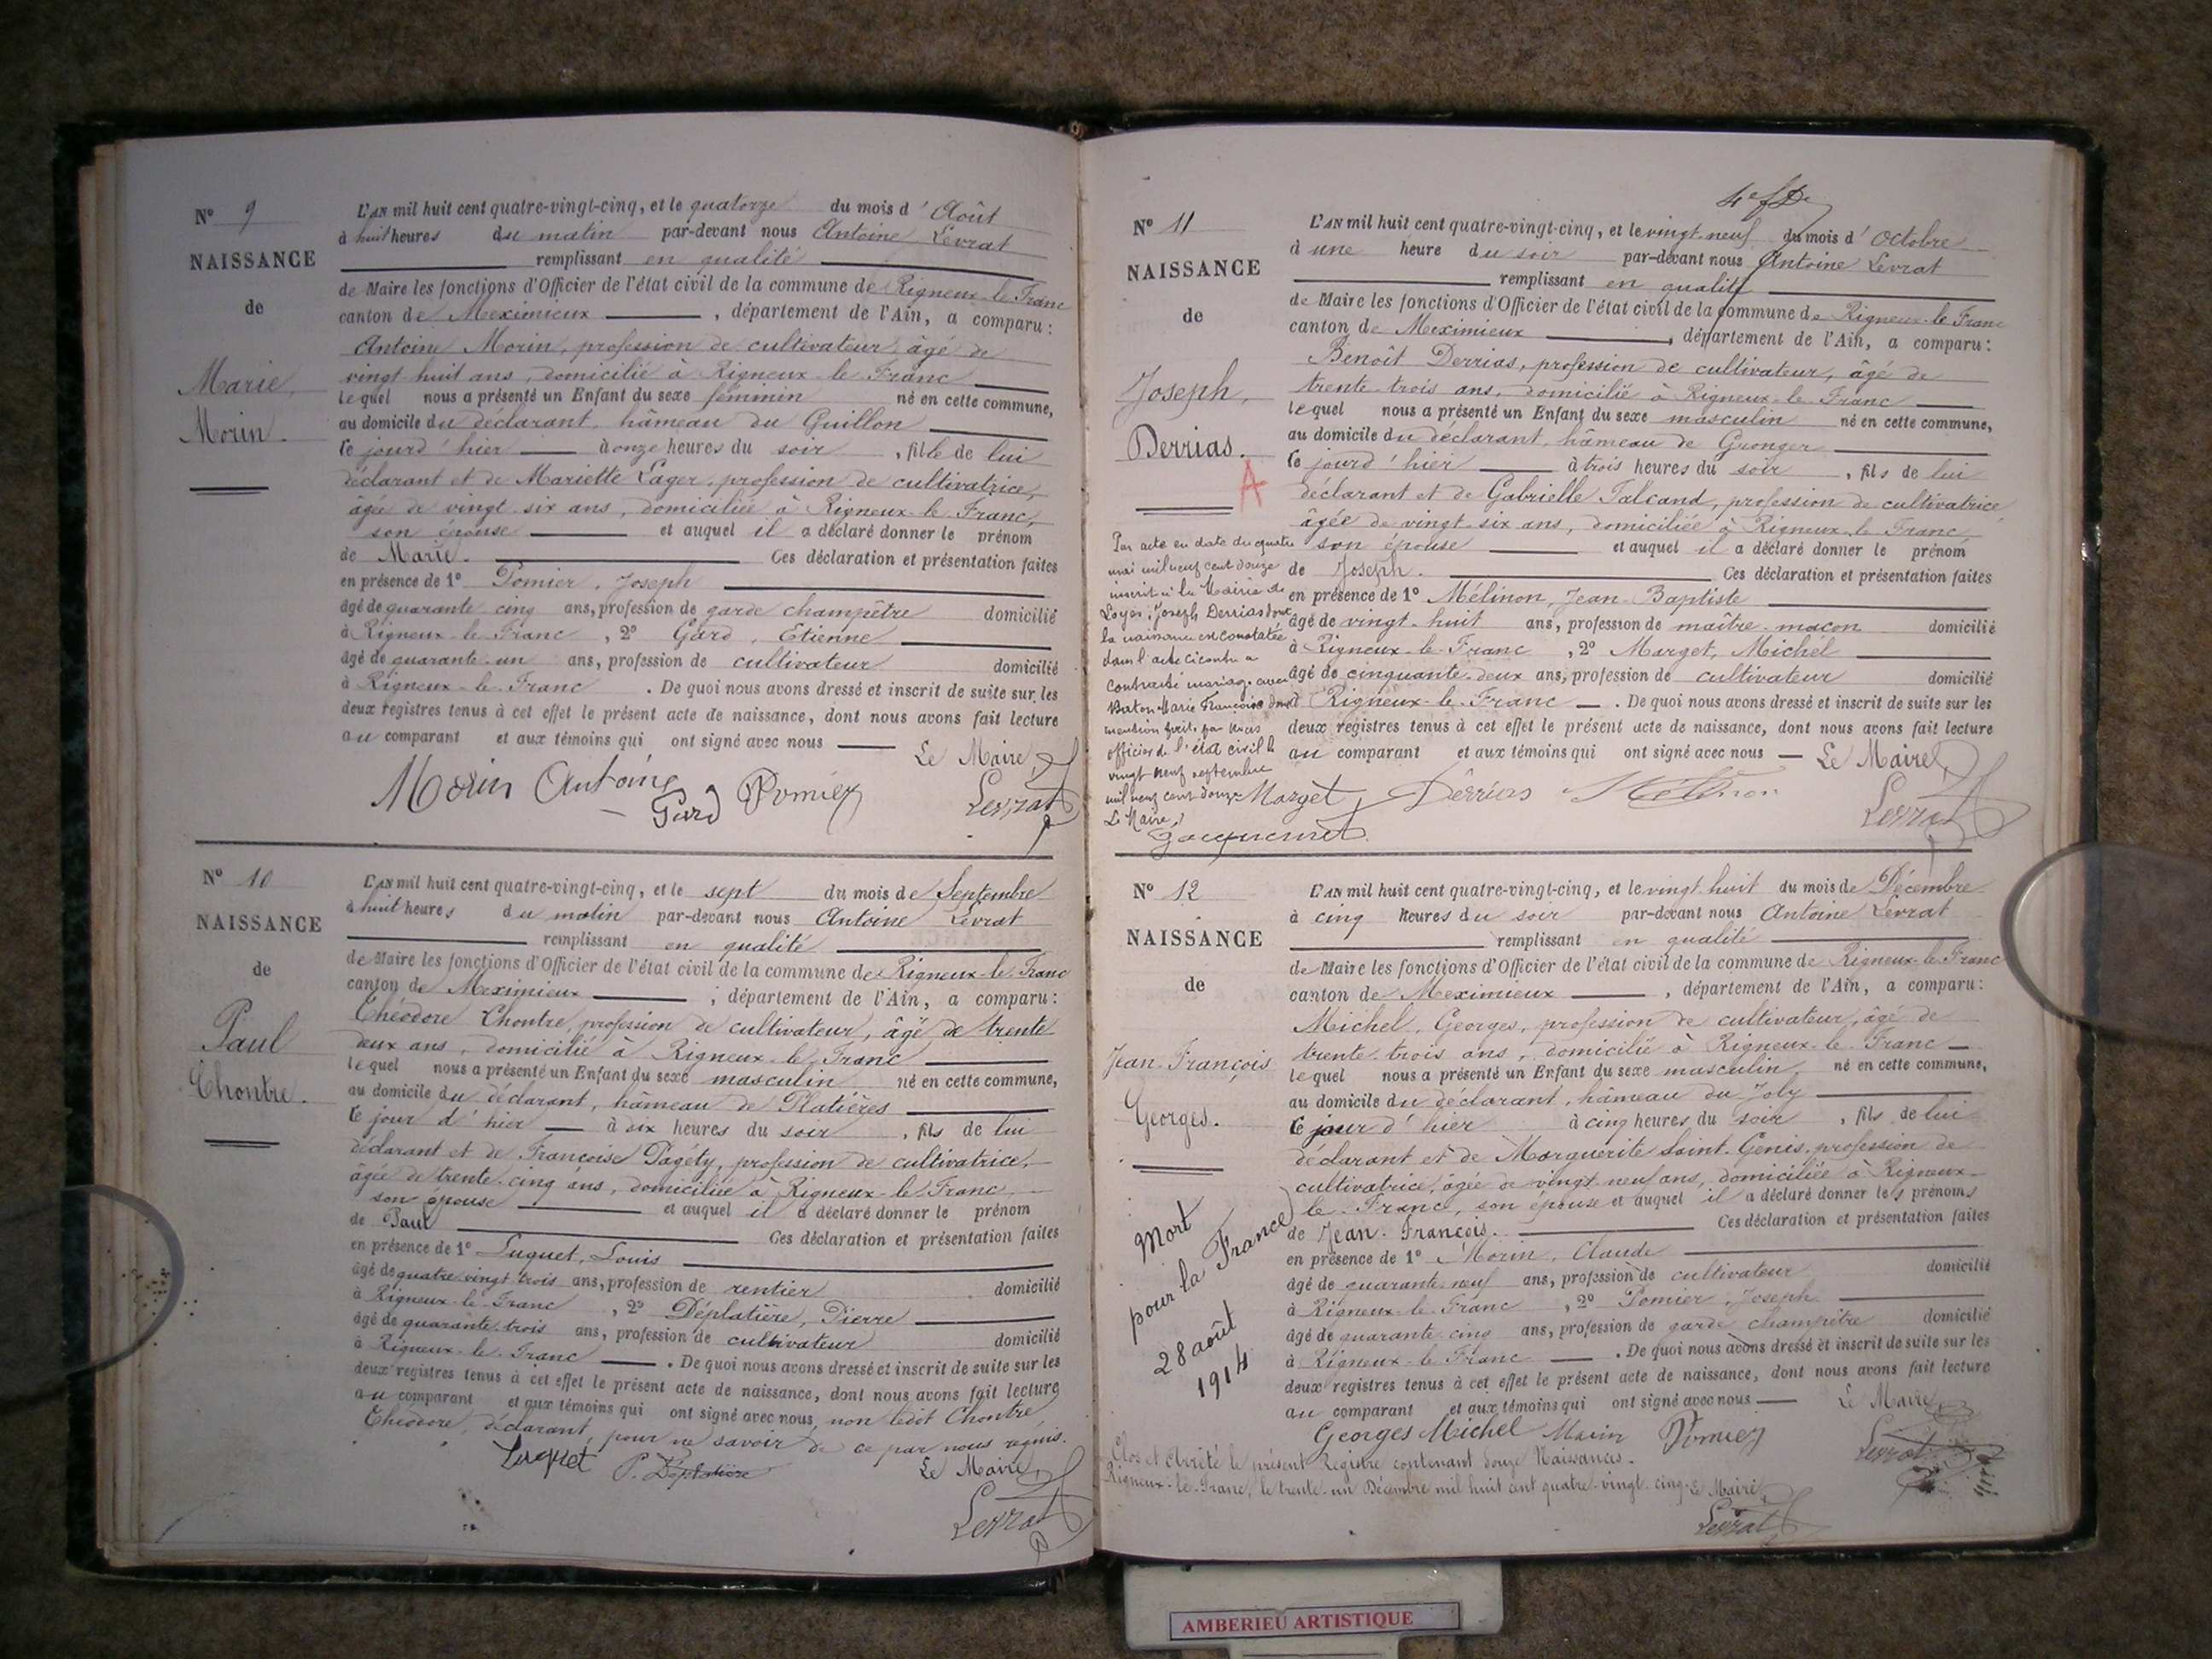 N° 9
NAISSANCE
de
Marie,
Morin.
L'AN mil huit cent quatre-vingt-cinq, et le quatorze du mois d'Août
à huit heures du matin par-devant nous Antoine Levrat
remplissant en qualité
de Maire les fonctions d'Officier de l'état civil de la commune de Rigneux-le-Franc
canton de Meximieux, département de l'Ain, a comparu:
Antoine Morin, profession de cultivateur, âgé de
vingt huit ans, domicilié à Rigneux-le-Franc
lequel nous a présenté un Enfant du sexe féminin né en cette commune,
au domicile du déclarant, hâmeau du Guillon
le jourd'hier à onze heures du soir, fille de lui
déclarant et de Mariette Lager, profession de cultivatrice,
âgée de vingt-six ans, domiciliée à Rigneux-le-Franc,
son épouse et auquel il a déclaré donner le prénom
de Marie. Ces déclaration et présentation faites
en présence de 1° Pomier, Joseph
âgé de quarante cinq ans, profession de garde champêtre domicilié
à Rigneux-le-Franc, 2° Gard, Etienne
âgé de quarante-un ans, profession de cultivateur domicilié
à Rigneux-le-Franc. De quoi nous avons dressé et inscrit de suite sur les
deux registres tenus à cet effet le présent acte de naissance, dont nous avons fait lecture
au comparant et aux témoins qui ont signé avec nous
Le Maire,
Morin Antoine Gard Pomier Levrat
N° 10
NAISSANCE
de
Paul
Chontre.
L'AN mil huit cent quatre-vingt-cinq, et le sept du mois de Septembre
à huit heures du matin par-devant nous Antoine Levrat
remplissant en qualité
de Maire les fonctions d'Officier de l'état civil de la commune de Rigneux-le-Franc
canton de Meximieux, département de l'Ain, a comparu:
Théodore Chontre, profession de cultivateur, âgé de trente
deux ans, domicilié à Rigneux-le-Franc
lequel nous a présenté un Enfant du sexe masculin né en cette commune,
au domicile du déclarant, hâmeau de Platières
le jour d'hier à six heures du soir, fils de lui
déclarant et de Françoise Pagéty, profession de cultivatrice,
âgée de trente-cinq ans, domiciliée à Rigneux-le-Franc,
son épouse et auquel il a déclaré donner le prénom
de Paul Ces déclaration et présentation faites
en présence de 1° Luquet, Louis
âgé de quatre vingt trois ans, profession de rentier domicilié
à Rigneux-le-Franc, 2° Déplatière, Pierre
âgé de quarante-trois ans, profession de cultivateur domicilié
à Rigneux-le-Franc. De quoi nous avons dressé et inscrit de suite sur les
deux registres tenus à cet effet le présent acte de naissance, dont nous avons fait lecture
au comparant et aux témoins qui ont signé avec nous, non ledit Chontre
Théodore, déclarant, pour ne savoir de ce par nous requis.
Luquet P. Déplatière Le Maire,
Levrat
N° 11
NAISSANCE
de
Joseph,
Derrias.
A
Par acte en date du quatre
mai mil neuf cent douze
inscrit à la Mairie de
Loyes, Joseph Derrias dont
la naissance est constatée
dans l'acte ci contre a
contracté mariage avec
Marie Françoise dont
mention faite par nous
officier de l'état civil le
vingt neuf septembre
mil neuf cent douze
Le Maire,
Jacquemet
L'AN mil huit cent quatre-vingt-cinq, et le vingt-neuf du mois d'Octobre
à une heure du soir par-devant nous Antoine Levrat
remplissant en qualité
de Maire les fonctions d'Officier de l'état civil de la commune de Rigneux-le-Franc
canton de Meximieux, département de l'Ain, a comparu:
Benoît Derrias, profession de cultivateur, âgé de
trente-trois ans, domicilié à Rigneux-le-Franc
lequel nous a présenté un Enfant du sexe masculin né en cette commune,
au domicile du déclarant, hâmeau de Gronger
le jourd'hier à trois heures du soir, fils de lui
déclarant et de Gabrielle Falcand, profession de cultivatrice
âgée de vingt-six ans, domiciliée à Rigneux-le-Franc,
son épouse et auquel il a déclaré donner le prénom
de Joseph. Ces déclaration et présentation faites
en présence de 1° Mélinon, Jean-Baptiste
âgé de vingt-huit ans, profession de maître-maçon domicilié
à Rigneux-le-Franc, 2° Marget, Michel
âgé de cinquante-deux ans, profession de cultivateur domicilié
à Rigneux-le-Franc. De quoi nous avons dressé et inscrit de suite sur les
deux registres tenus à cet effet le présent acte de naissance, dont nous avons fait lecture
au comparant et aux témoins qui ont signé avec nous — Le Maire,
Marget Dérrias Mélinon Levrat
N° 12
NAISSANCE
de
Jean-François
Georges.
Mort
pour la France
28 août
1914
L'AN mil huit cent quatre-vingt-cinq, et le vingt-huit du mois de Décembre
à cinq heures du soir par-devant nous Antoine Levrat
remplissant en qualité
de Maire les fonctions d'Officier de l'état civil de la commune de Rigneux-le-Franc
canton de Meximieux, département de l'Ain, a comparu:
Michel, Georges, profession de cultivateur, âgé de
trente-trois ans, domicilié à Rigneux-le-Franc
lequel nous a présenté un Enfant du sexe masculin né en cette commune,
au domicile du déclarant, hâmeau du Joly
le jour d'hier à cinq heures du soir, fils de lui
déclarant et de Marguerite Saint-Genis, profession de
cultivatrice, âgée de vingt-neuf ans, domiciliée à Rigneux-
le-Franc, son épouse et auquel il a déclaré donner les prénoms
de Jean-François. Ces déclaration et présentation faites
en présence de 1° Morin, Claude
âgé de quarante-neuf ans, profession de cultivateur domicilié
à Rigneux-le-Franc, 2° Pomier, Joseph
âgé de quarante-cinq ans, profession de garde champêtre domicilié
à Rigneux-le-Franc. De quoi nous avons dressé et inscrit de suite sur les
deux registres tenus à cet effet le présent acte de naissance, dont nous avons fait lecture
au comparant et aux témoins qui ont signé avec nous — Le Maire,
Georges Michel Morin Pomier Levrat
Clos et Arrêté le présent Registre contenant douze Naissances.
Rigneux-le-Franc, le trente-un Décembre mil huit cent quatre-vingt-cinq. Le Maire,
Levrat
AMBERIEU ARTISTIQUE